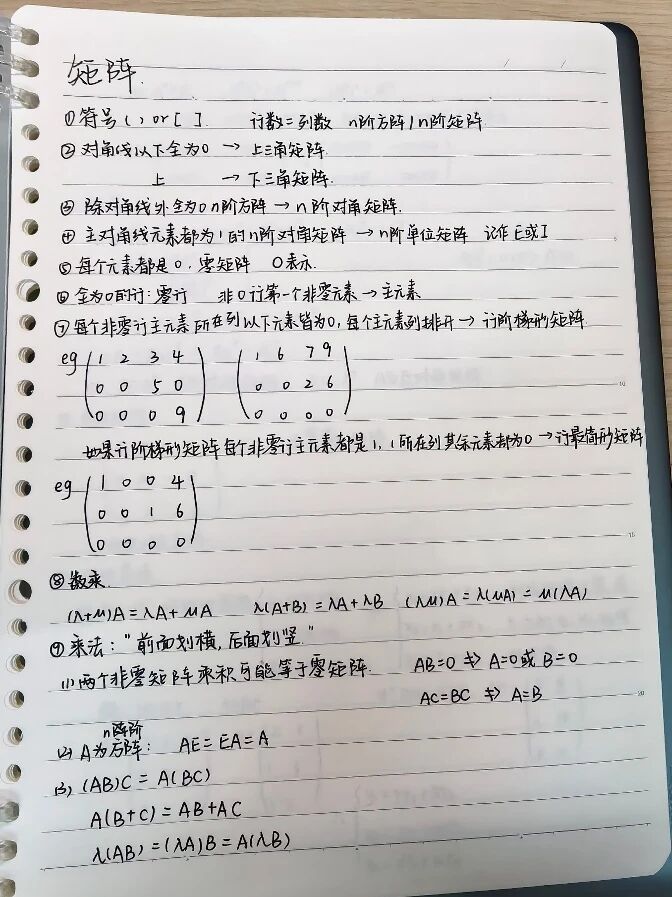 矩阵.
①符号( ) or [ ]. 行数=列数 n阶方阵/n阶矩阵
②对角线以下全为0 → 上三角矩阵.
上 → 下三角矩阵.
③除对角线外全为0 n阶方阵 → n阶对角矩阵.
④主对角线元素都为1的n阶对角矩阵 → n阶单位矩阵 记作E或I
⑤每个元素都是0. 零矩阵 O表示.
⑥全为0的行: 零行 非0行第一个非零元素 → 主元素
⑦每个非零行主元素所在列以下元素皆为0, 每个主元素列排开 → 行阶梯形矩阵
eg ( 1 2 3 4 ) ( 1 6 7 9 )
0 0 5 0 0 0 2 6
0 0 0 9 0 0 0 0
如果行阶梯形矩阵每个非零行主元素都是1, 1所在列其余元素都为0 → 行最简形矩阵
eg ( 1 0 0 4 )
0 0 1 6
0 0 0 0
⑧数乘.
(λ+μ)A = λA + μA λ(A+B) = λA + λB (λμ)A = λ(μA) = μ(λA)
⑨乘法: "前面划横, 后面划竖."
(1)两个非零矩阵乘积可能等于零矩阵. AB=0 ⇏ A=0或B=0
AC=BC ⇏ A=B
n阵阶
(2) A为方阵: AE = EA = A
(3) (AB)C = A(BC)
A(B+C) = AB+AC
λ(AB) = (λA)B = A(λB)